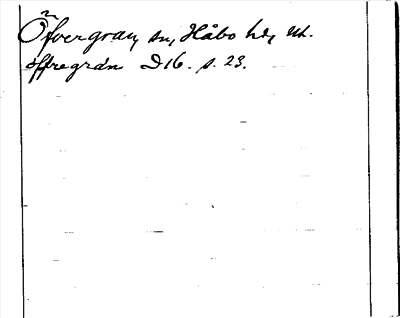 Öfvergran, sn, Håbo hd, Upl.
öffregrán D16. s. 23.